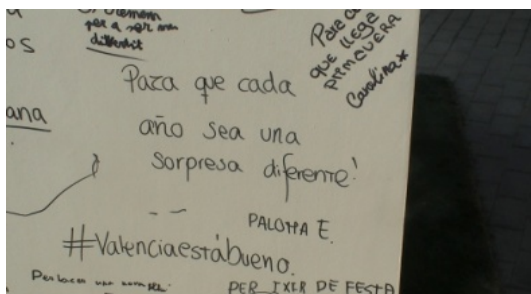 per a ser un
Para
que llegue
primavera
Carolina*
os
ana
Para que cada
año sea una
sorpresa diferente!
PALOMA E.
#Valenciaestábueno.
PER IXIR DE FESTA